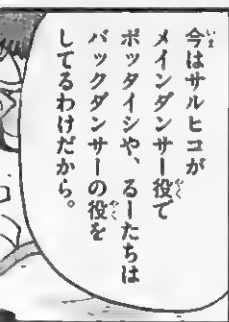 今はサルヒコが
メインダンサー役で
ポッタイシや、るーたちは
バックダンサーの役を
してるわけだから。